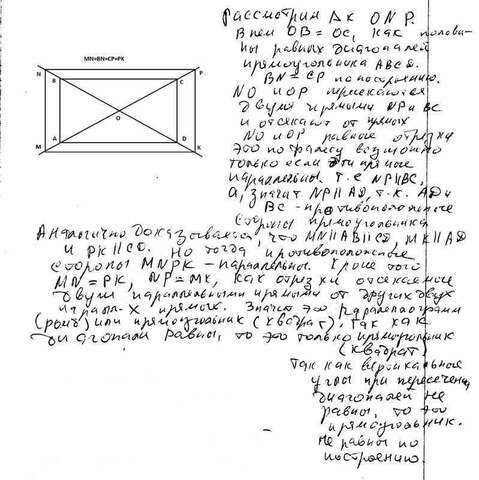 MN=BN=CP=PK
N
P
B
C
O
A
D
M
K
Рассмотрим Δк ONP.
В нем OB = OC, как полови-
ны равных диагоналей
прямоугольника ABCD.
BN = CP по построению.
NO и OP пересекаются
двумя прямыми NP и BC
и отсекают от прямых
NO и OP равные отрезки
Это по Фалесу возможно
только если эти прямые
параллельны. т.е NP||BC,
а, значит NP||AD, т.к. AD и
BC - противоположные
стороны прямоугольника
Аналогично доказывается, что MN||AB||CD, MK||AD
и PK||CD. Но тогда противоположные
стороны MNPK - параллельны. Кроме того
MN = PK, NP = MK, как отрезки отсекаемые
двумя параллельными прямыми от других двух
прямых. Значит это параллелограмм
(ромб) или прямоугольник (квадрат), так как
диагонали равны, то это только прямоугольник
(квадрат)
Так как вертикальные
углы при пересечении
диагоналей не
равны, то это
прямоугольник.
Не равны по
построению.